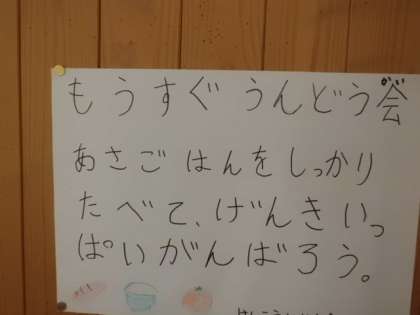 もうすぐ うんどう会
あさごはんをしっかり
たべて、げんきいっ
ぱいがんばろう。